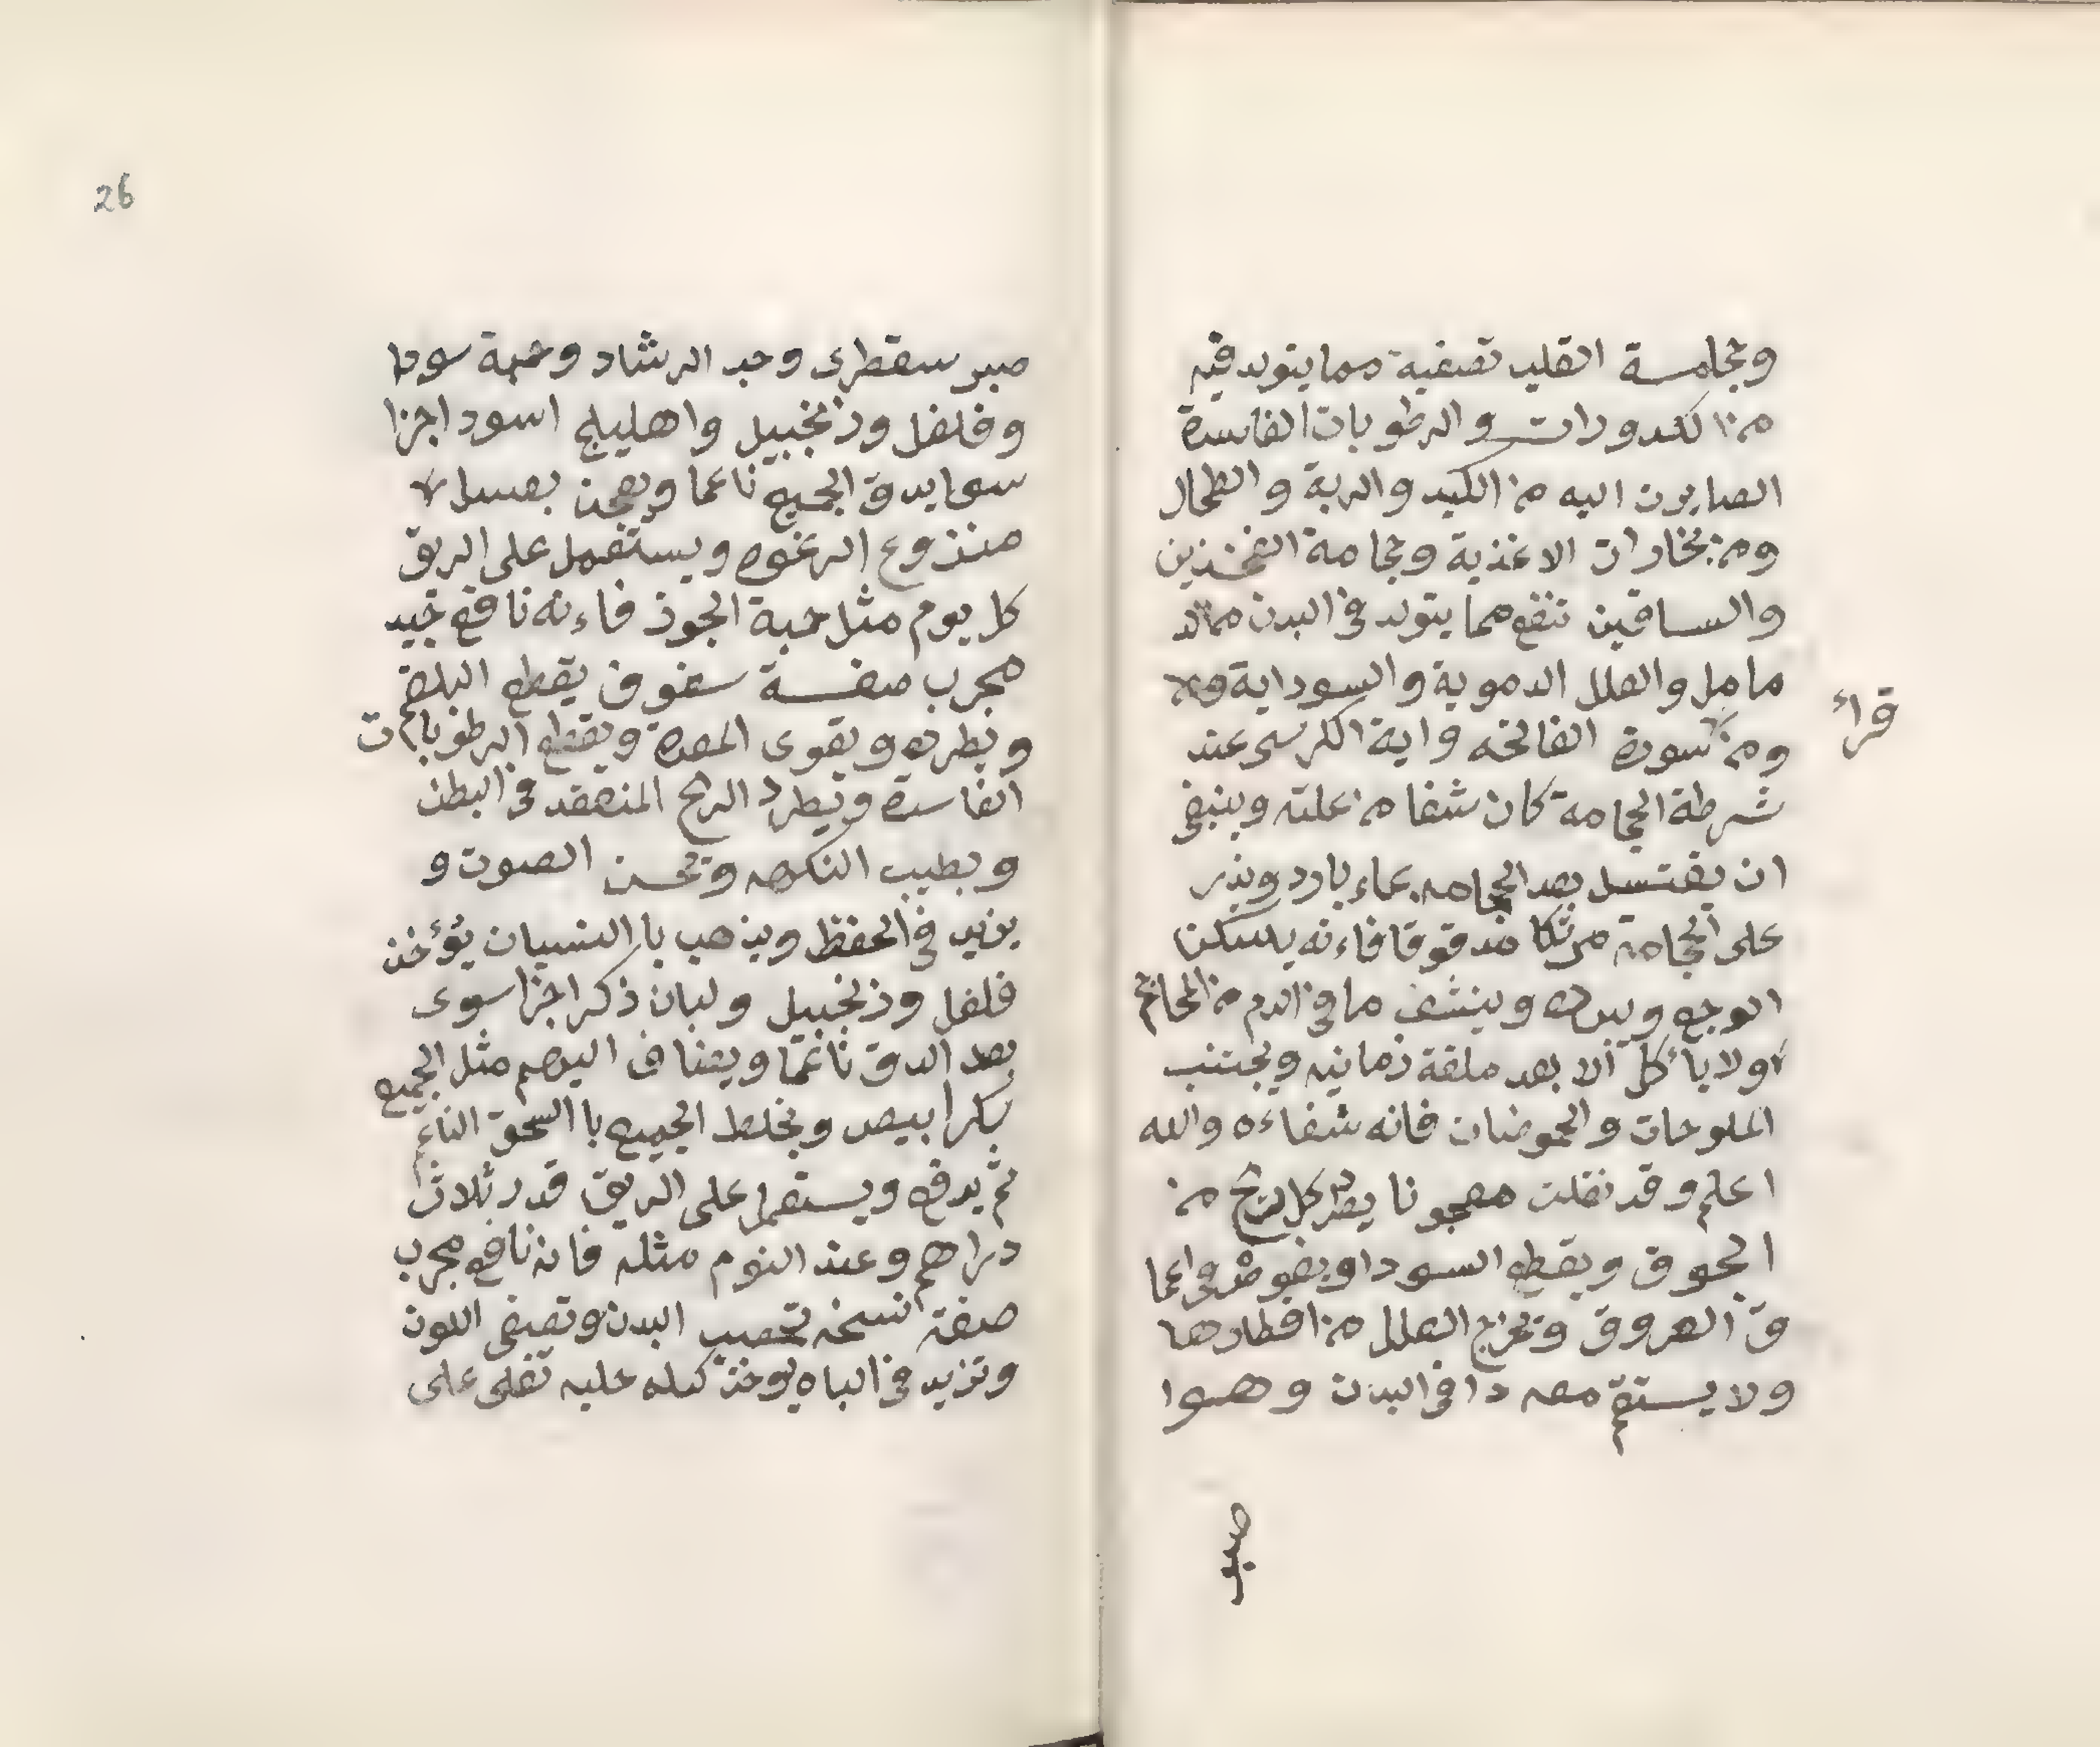 وحجامسة القلب تصفية مما يتولد فيه
من الكدورات والرطوبات الفاسدة
الصايرت اليه من الكبد والرية والطحال
ومن بخارات الاغذية وحجامة الفخذين
والساقين تنفع مما يتولد في البدن من الد
مامل والعلل الدموية والسوداية
ومن سورة الفاتحه واية الكرسي عند
قراء
شرطة الحجامة كان شفا من علته وينبغي
ان يغتسل بعد الحجامه بماء بارد ويذر
على الحجامه مرتكا مدقوقا فاءنه يسكن
الوجع ويبرده وينشف ما في الدم من المحاجم
ولا ياءكل الا بعد ملقة زمانيه ويجتنب
الملوحات والحموضات فانه شفاءه والله
اعلم وقد نقلت معجونا يطرد كل ريح من
الجوف ويقطع السودا ويغوص في اعما
ق العروق ويخرج العلل من اقطارها
ولا يستقم معه دا في البدن وهوا
صبر
26
صبر سقطرى وحب الرشاد وحبة سودا
وفلفل وزنجبيل واهليلج اسود اجزا
سوا يدق الجميع ناعما ويعجن بعسل
منزوع الرغوه ويستعمل على الريق
كل يوم مثل حبة الجوز فاءنه نافع جيد
مجرب صفسة سفوف يقطع البلغم
ويطرده ويقوى المعده ويقطع الرطوبات
الفاسدة ويطرد الريح المنعقد في البطن
ويطيب النكهه ويحسن الصوت و
يزيد في الحفظ ويذهب با النسيان يؤخذ
فلفل وزنجبيل ولبان ذكر اجزا سوى
بعد الدق ناعما ويضاف اليهم مثل الجميع
سكر ابيض ويخلط الجميع با السحق الناعم
ثم يرفع ويستعمل على الريق قدر ثلاث
دراهم وعند النوم مثله فانه نافع مجرب
صفة نسخه تخصب البدن وتصفى اللون
وتزيد في الباه يوخذ كيله حلبه تغلى على